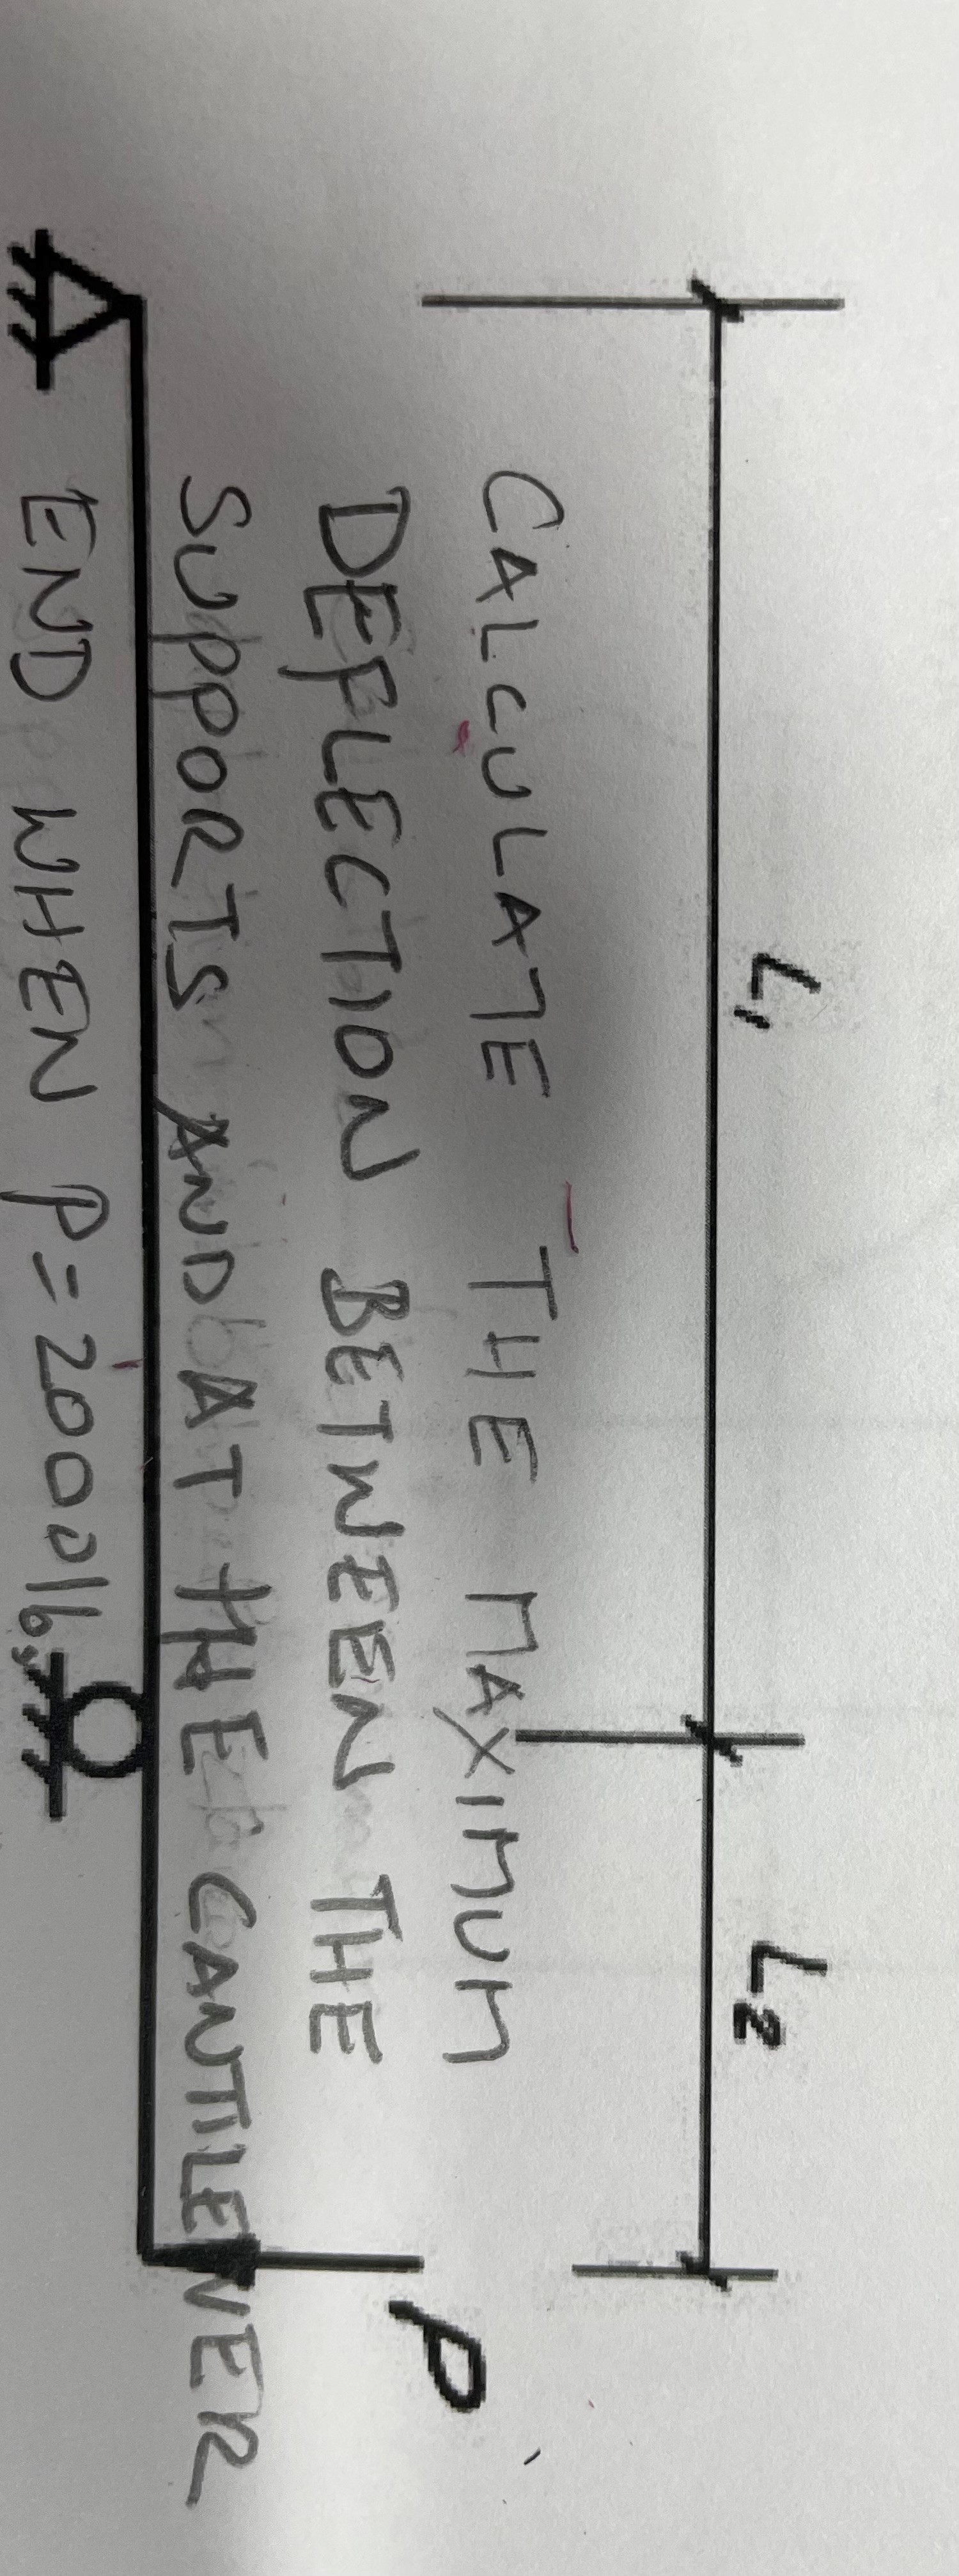 L1
L2
P
CALCULATE THE MAXIMUM
DEFLECTION BETWEEN THE
SUPPORTS AND AT THE CANTILEVER
END WHEN P=2000lbs